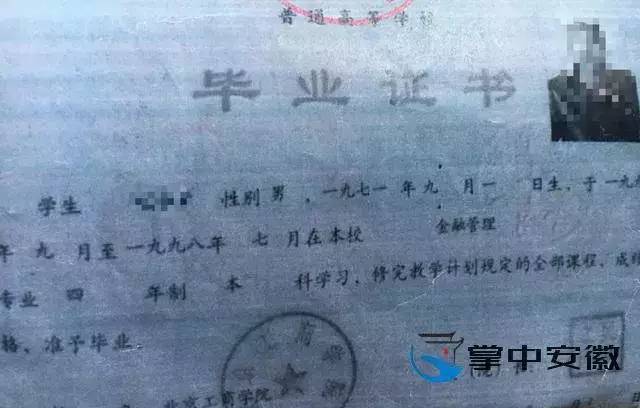 普通高等学校
毕业证书
学生 性别 男 ，一九七一 年 九 月 一 日生，于 一九九
年 九 月至 一九九八 年 七 月在本校 金融管理
专业 四 年制 本 科学习，修完教学计划规定的全部课程，成绩
格，准予毕业。
北京工商学院
掌中安徽